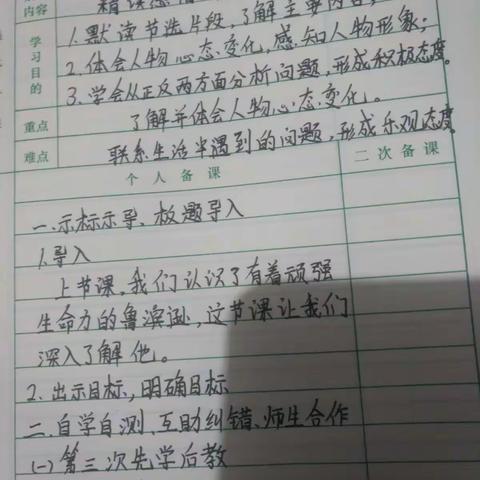 内容
学习目的
1.默读节选片段,了解主要内容;
2.体会人物心态变化,感知人物形象;
3.学会从正反两方面分析问题,形成积极态度。
重点
了解并体会人物心态变化。
难点
联系生活中遇到的问题,形成乐观态度
个人备课
二次备课
一.示标示导、板题导入
1.导入
上节课,我们认识了有着顽强
生命力的鲁滨逊,这节课让我们
深入了解他。
2.出示目标,明确目标
二.自学自测、互助纠错、师生合作
(一)第三次先学后教